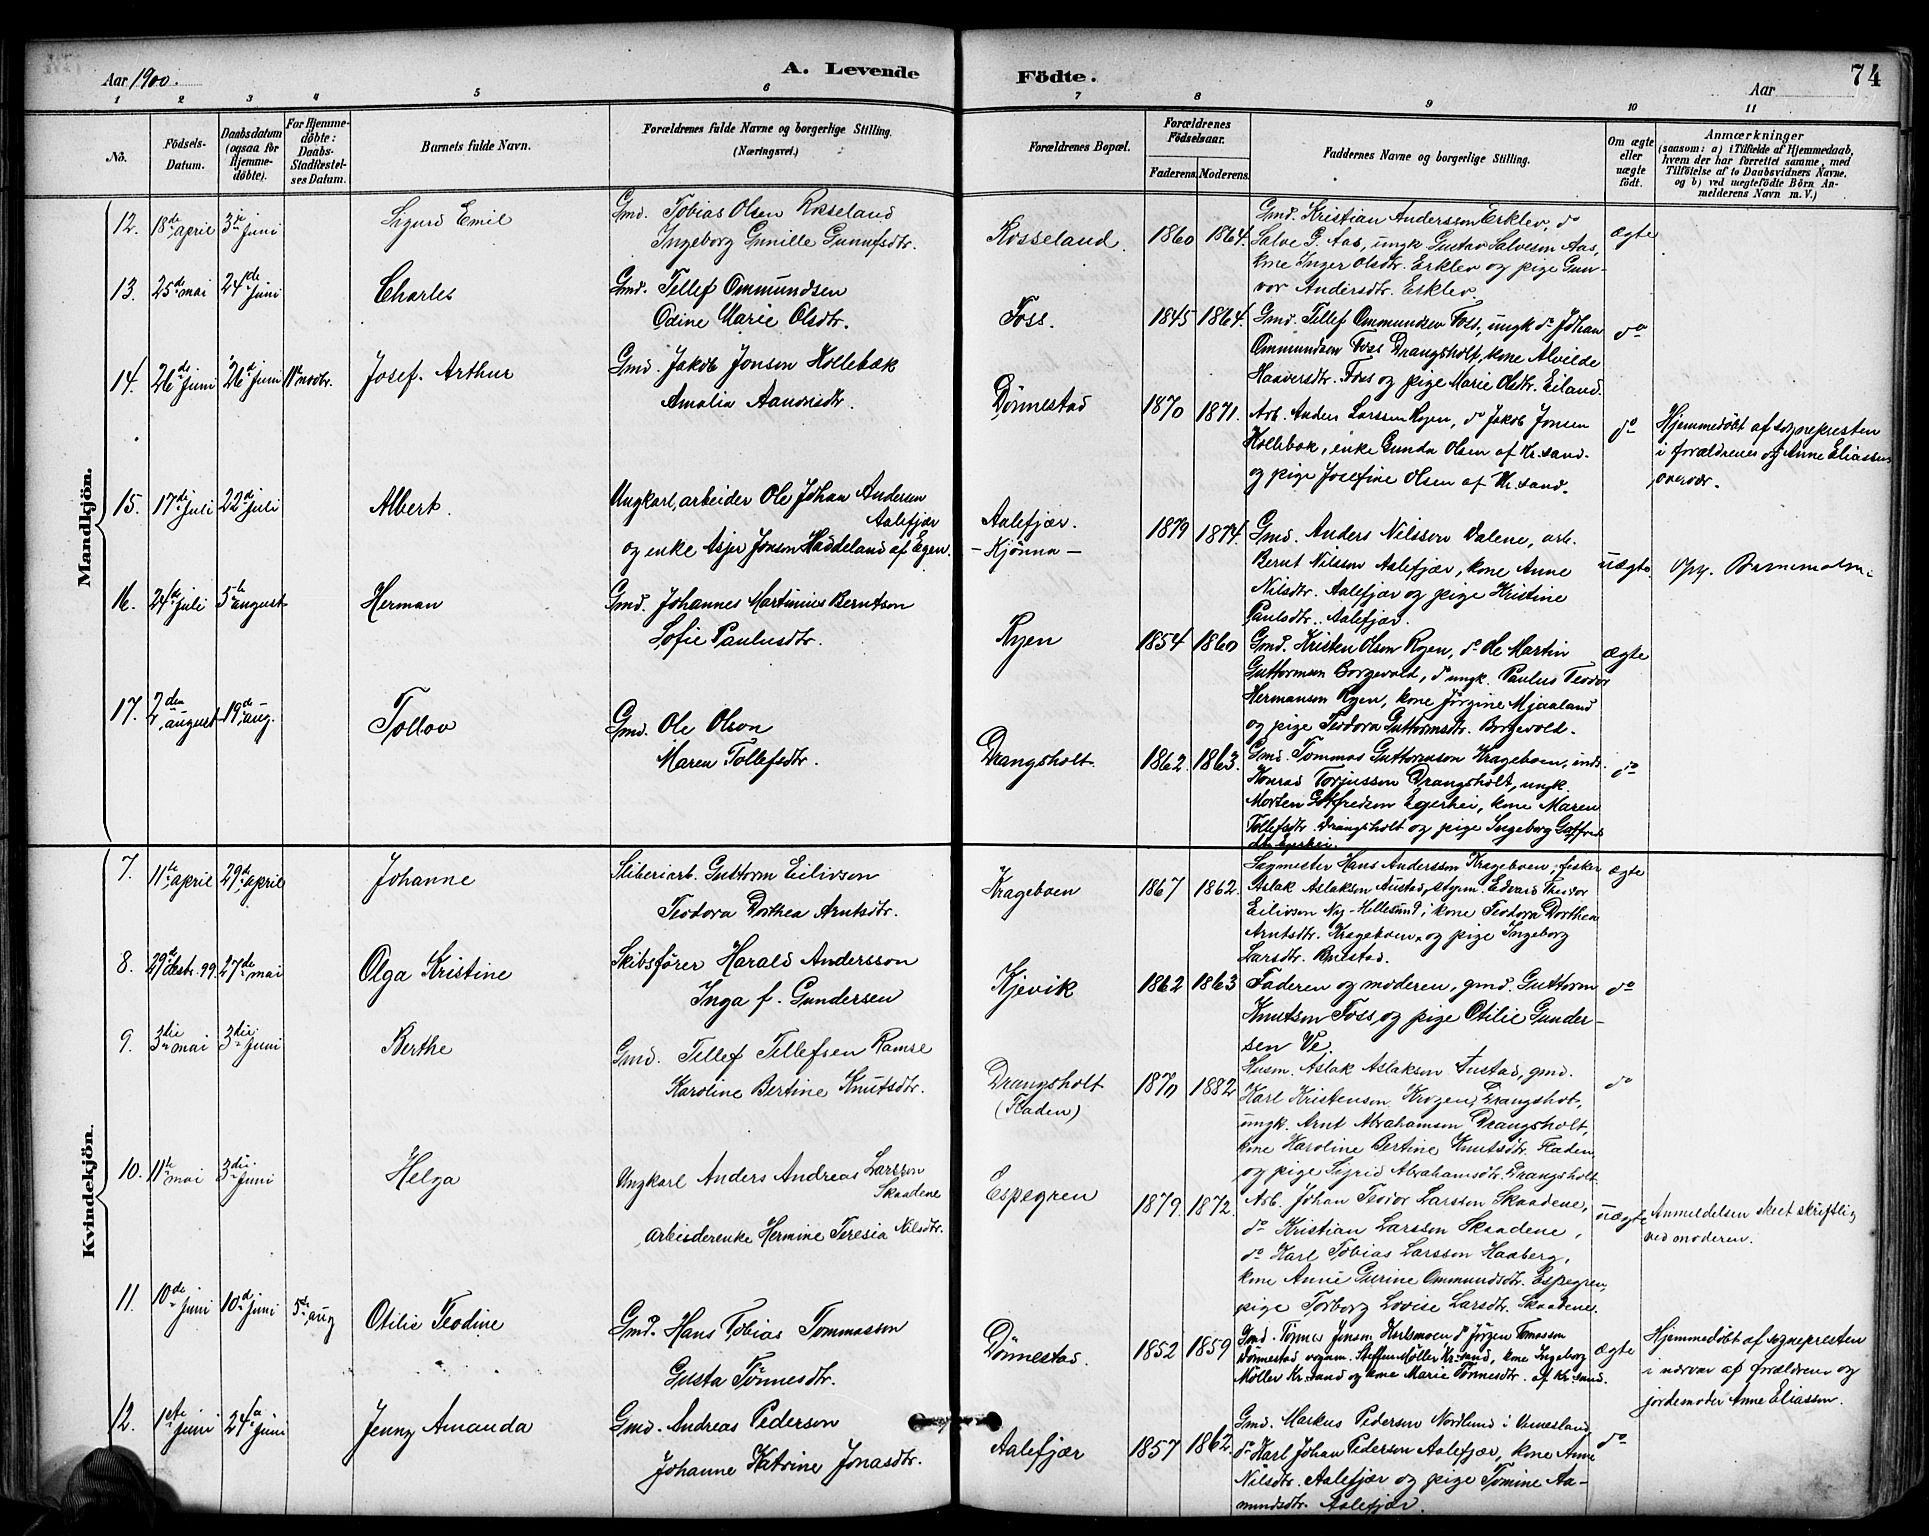 Aar 1900.
A. Levende
Födte.
Aar
74
1 2 3 4 5 6 7 8 9 10 11
No.
Födsels-
Datum.
Daabsdatum
(ogsaa for
Hjemme-
döbte).
For Hjemme-
döbte:
Daabs-
Stadfæstel-
ses Datum.
Barnets fulde Navn.
Forældrenes fulde Navne og borgerlige Stilling.
(Næringsvei.)
Forældrenes Bopæl.
Forældrenes
Födselsaar.
Faderens. Moderens.
Faddernes Navne og borgerlige Stilling.
Om ægte
eller
uægte
födt.
Anmærkninger
(saasom: a) i Tilfælde af Hjemmedaab,
hvem der har forrettet samme, med
Tilföielse af to Daabsvidners Navne,
og b) ved uægtefödte Börn An-
melderens Navn m. V.)
Mandkjön.
12. 18de april 3die juni
Sigurd Emil
Gmd. Tobias Olsen Rosseland
Ingeborg Gunille Gunufsdtr.
Rosseland. 1860 1864.
Gmd. Kristian Anderssen Erklev, do
Salve G. Aas, ungk. Gustav Salvesen Aas,
kone Inger Olsdtr. Erklev og pige Gun-
vor Andersdtr. Erklev.
ægte
13. 25de mai 24de juni
Charles
Gmd. Tellef Ommundsen
Odine Marie Olsdtr.
Foss. 1845 1864.
Gmd. Tellef Ommundsen Foss, ungk do Johan
Ommundsen Foss Drangsholt, kone Alvilde
Haaversdtr. Foss og pige Marie Olsdtr. Eiland.
do
14. 26de juni 26de juni 11te novbr.
Josef Arthur
Gmd. Jakob Jonsen Hollebæk
Amalia Aanonsdtr.
Dønnestad 1870 1871.
Arb. Anders Larssen Ryen, do Jakob Jonsen
Hollebæk, enke Gunda Olsen af Kr.sand.
og pige Josefine Olsen af Kr.sand.
do
Hjemmedøbt af sognepresten
i forældrenes og Anne Eliassens
overvær.
15. 17de juli 22de juli
Albert.
Ungkarl, arbeider Ole Johan Andersen
Aalefjær
og enke Asjer Jonsen Haddeland af Egen.
Aalefjær.
- Kjønna - 1879 1874.
Gmd. Anders Nilssen Dalene, arb.
Bernt Nilssen Aalefjær, kone Anne
Nilsdtr. Aalefjær og pige Kristine
Paulsdtr. Aalefjær.
uægte
Opg. Barnemoren.
16. 24de juli 5te august
Herman
Gmd. Johannes Martinius Berntsen
Sofie Paulusdtr.
Ryen 1854 1860
Gmd. Kristen Olsen Ryen, do Ole Martin
Guttormsen Borgevold, do ungk. Paulus Teodor
Hermansen Ryen, kone Jørgine Mjaaland
og pige Teodora Guttormsdtr. Borgevold.
ægte
17. 7den august 19de aug.
Tollov
Gmd. Ole Olsen
Maren Tollefsdtr.
Drangsholt. 1862. 1863.
Gmd. Tommas Guttormsen Krageboen, inds.
Konrad Torjussen Drangsholt, ungk.
Morten Gotfredsen Egerhei, kone Maren
Tollefsdtr. Drangsholt og pige Ingeborg Gotfreds
dtr. Egerhei.
do
Kvindekjön.
7. 11te april 29de april
Johanne
Sliberiarb. Guttorm Eilivsen
Teodora Dorthea Arntsdtr.
Krageboen 1867 1862.
Sagmester Hans Anderssen Krageboen, fisker
Aslak Aslaksen Austad, styrm. Edvard Teodor
Eilivsen Ny-Hellesund, kone Teodora Dorthea
Arntsdtr. Krageboen og pige Ingeborg
Larsdtr. Bustad.
ægte
8. 29de decbr. 99. 27de mai
Olga Kristine
Skibsfører Harald Anderssen
Inga f. Gundersen
Kjevik 1862 1863
Faderen og moderen, gmd. Guttorm
Knutsen Foss og pige Otilie Gunder-
sen Ve.
do
9. 3die mai 3die juni
Berthe
Gmd. Tellef Tellefsen Ramse
Karoline Bertine Knutsdtr.
Drangsholt
(Fladen) 1870 1882
Husm. Aslak Aslaksen Austad, gmd.
Karl Kristensen Krogen, Drangsholt,
ungk. Arnt Abrahamsen Drangsholt,
kone Karoline Bertine Knutsdtr. Fladen
og pige Sigrid Abrahamsdtr. Drangsholt
do
10. 11te mai 3die juni
Helga
Ungkarl Anders Andreas Larssen
Skaadene
Arbeiderenke Hermine Teresia Nilsdtr.
Espegren 1879. 1872.
Arb. Johan Teodor Larssen Skaadene,
do Kristian Larssen Skaadene,
do Karl Tobias Larssen Haaberg,
kone Anne Gurine Ommundsdtr. Espegren,
pige Torborg Lovise Larsdtr. Skaadene.
uægte
Anmeldelsen skeet skriftlig
ved moderen.
11. 10de juni 10de juni 5te aug
Otilie Teodine
Gmd. Hans Tobias Tommassen
Gusta Tønnesdtr.
Dønnestad. 1852 1859
Gmd. Tønnes Jensen Karlsmoen do Jørgen Tomassen
Dønnestad vognm. Steffen Møller Kr.sand, kone Ingeborg
Møller Kr.sand og kone Marie Tønnesdtr. af Kr.sand.
ægte
Hjemmedøbt af sognepresten
i nærvær af forældrene og
jordemoder Anne Eliassen.
12. 1ste juni 24de juni
Jenny Amanda
Gmd. Andreas Pedersen
Johanne Katrine Jonasdtr.
Aalefjær 1857 1862.
Gmd. Markus Pedersen Nordlund i Vennesland
do Karl Johan Pedersen Aalefjær, kone Anne
Nilsdtr. Aalefjær og pige Tomine Aa-
mundsdtr. Aalefjær.
do